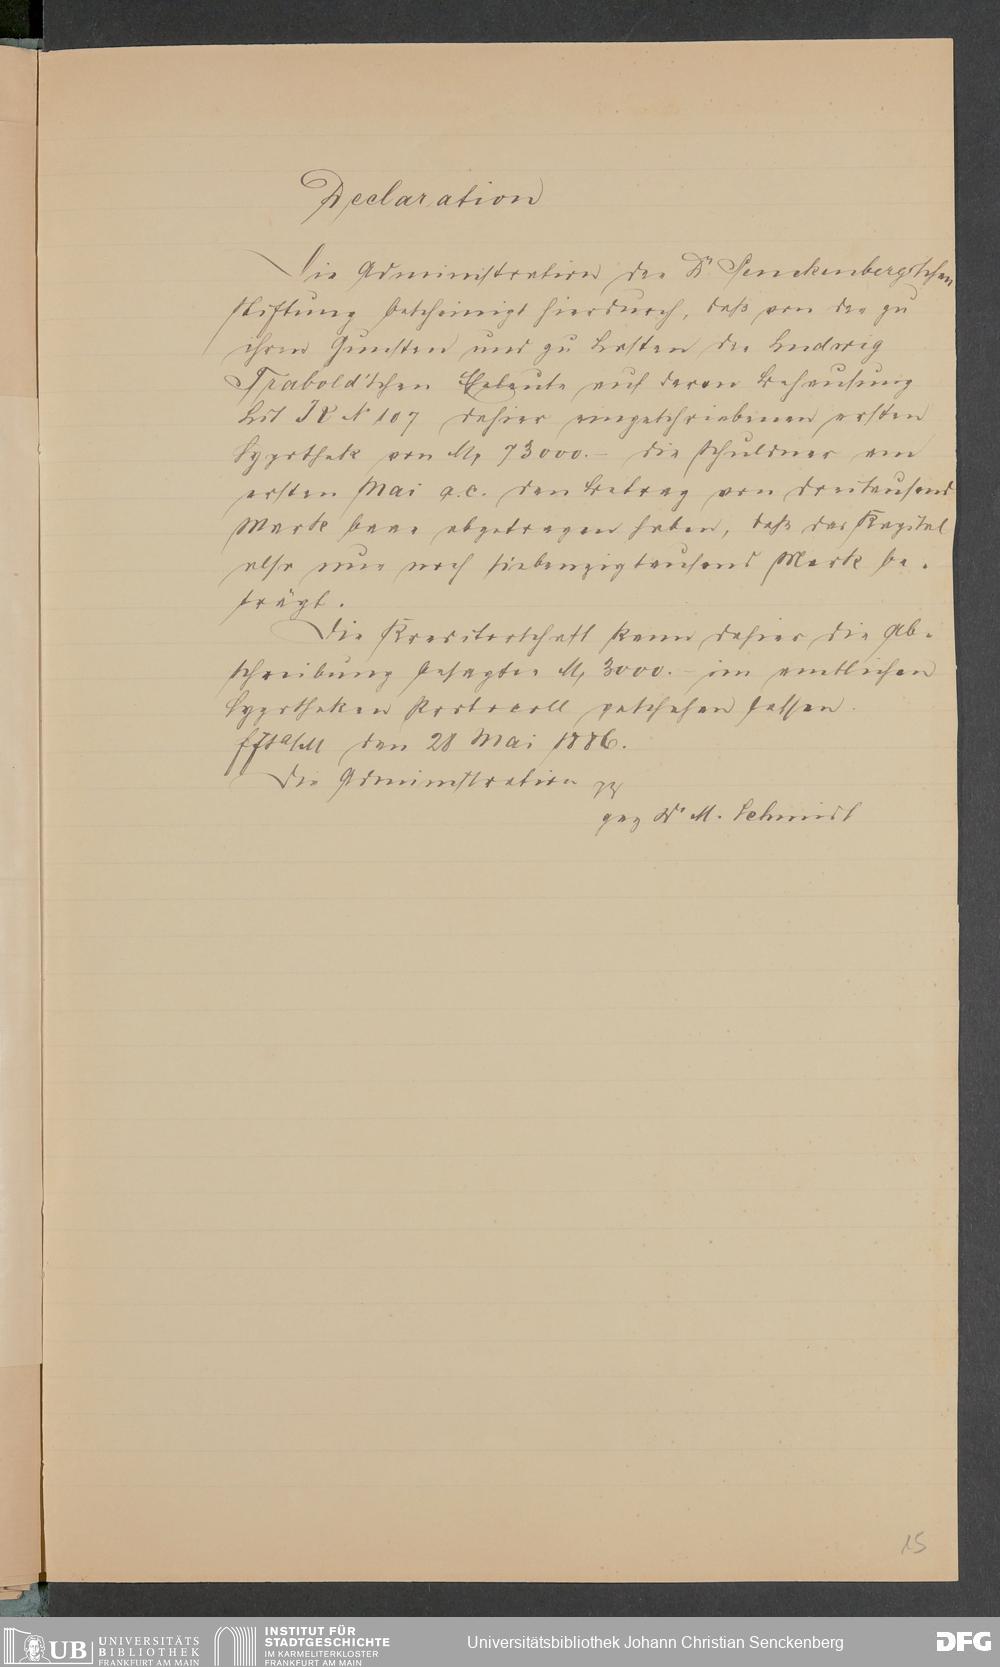 Declaration
Die Administration der Dr Senckenberg'schen
Stiftung bescheinigt hierdurch, daß von der zu
ihren Gunsten und zu Lasten der Ludwig
Trabold'schen Eheleute auf deren Behausung
Lit. № 107 dahier eingeschriebenen ersten
Hypothek von M, 73000.- die Schuldner am
ersten Mai a.c. den Betrag von dreitausend
Mark baar abgetragen haben, daß das Kapital
also nur noch siebenzigtausend Mark be-
trägt.
Die Kreditorschaft kann dahier die Ab-
schreibung besagter M, 3000.- im amtlichen
Hypotheken Protocoll geschehen lassen.
Ffta/M den 28 Mai 1886.
Die Administration
gez Dr M. Schmidt
15
UB UNIVERSITÄTS
BIBLIOTHEK
FRANKFURT AM MAIN
INSTITUT FÜR
STADTGESCHICHTE
IM KARMELITERKLOSTER
FRANKFURT AM MAIN
Universitätsbibliothek Johann Christian Senckenberg
DFG